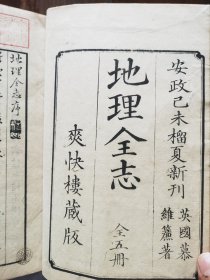 安政己未榴夏新刊
英國慕維廉著
地理全志
全五册
爽快樓藏版
地理全志序